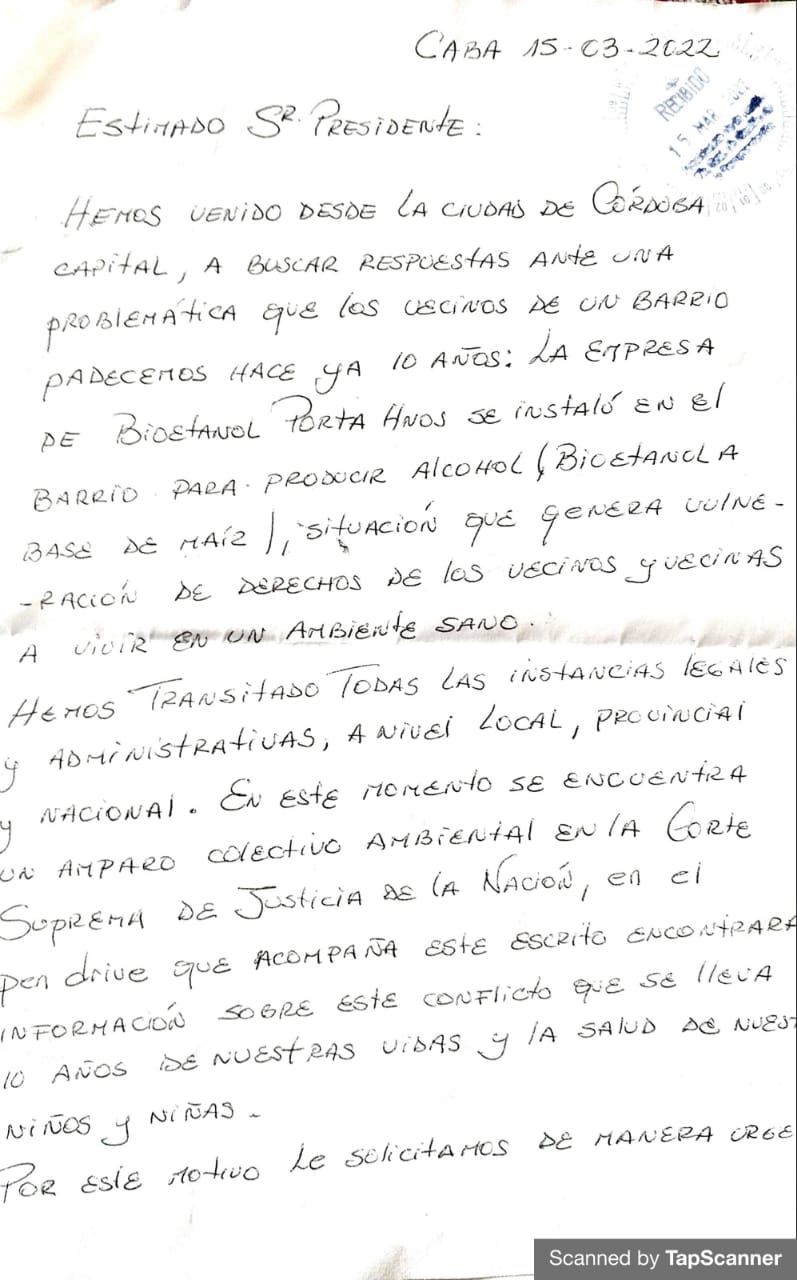 CABA 15-03-2022
RECIBIDO
15 MAR 2022
Estimado Sr. Presidente:
Hemos venido desde la ciudad de Córdoba
capital, a buscar respuestas ante una
problemática que los vecinos de un barrio
padecemos hace ya 10 años: La empresa
de Bioetanol Porta Hnos se instaló en el
barrio para producir alcohol (Bioetanol a
base de maíz), situación que genera vulne-
-ración de derechos de los vecinos y vecinas
a vivir en un ambiente sano.
Hemos Transitado Todas las instancias legales
y administrativas, a nivel local, provincial
y nacional. En este momento se encuentra
un amparo colectivo ambiental en la Corte
Suprema de Justicia de la Nación, en el
pen drive que acompaña este escrito encontrará
información sobre este conflicto que se lleva
10 años de nuestras vidas y la salud de nuest
niños y niñas.-
Por este motivo le solicitamos de manera urge
Scanned by TapScanner